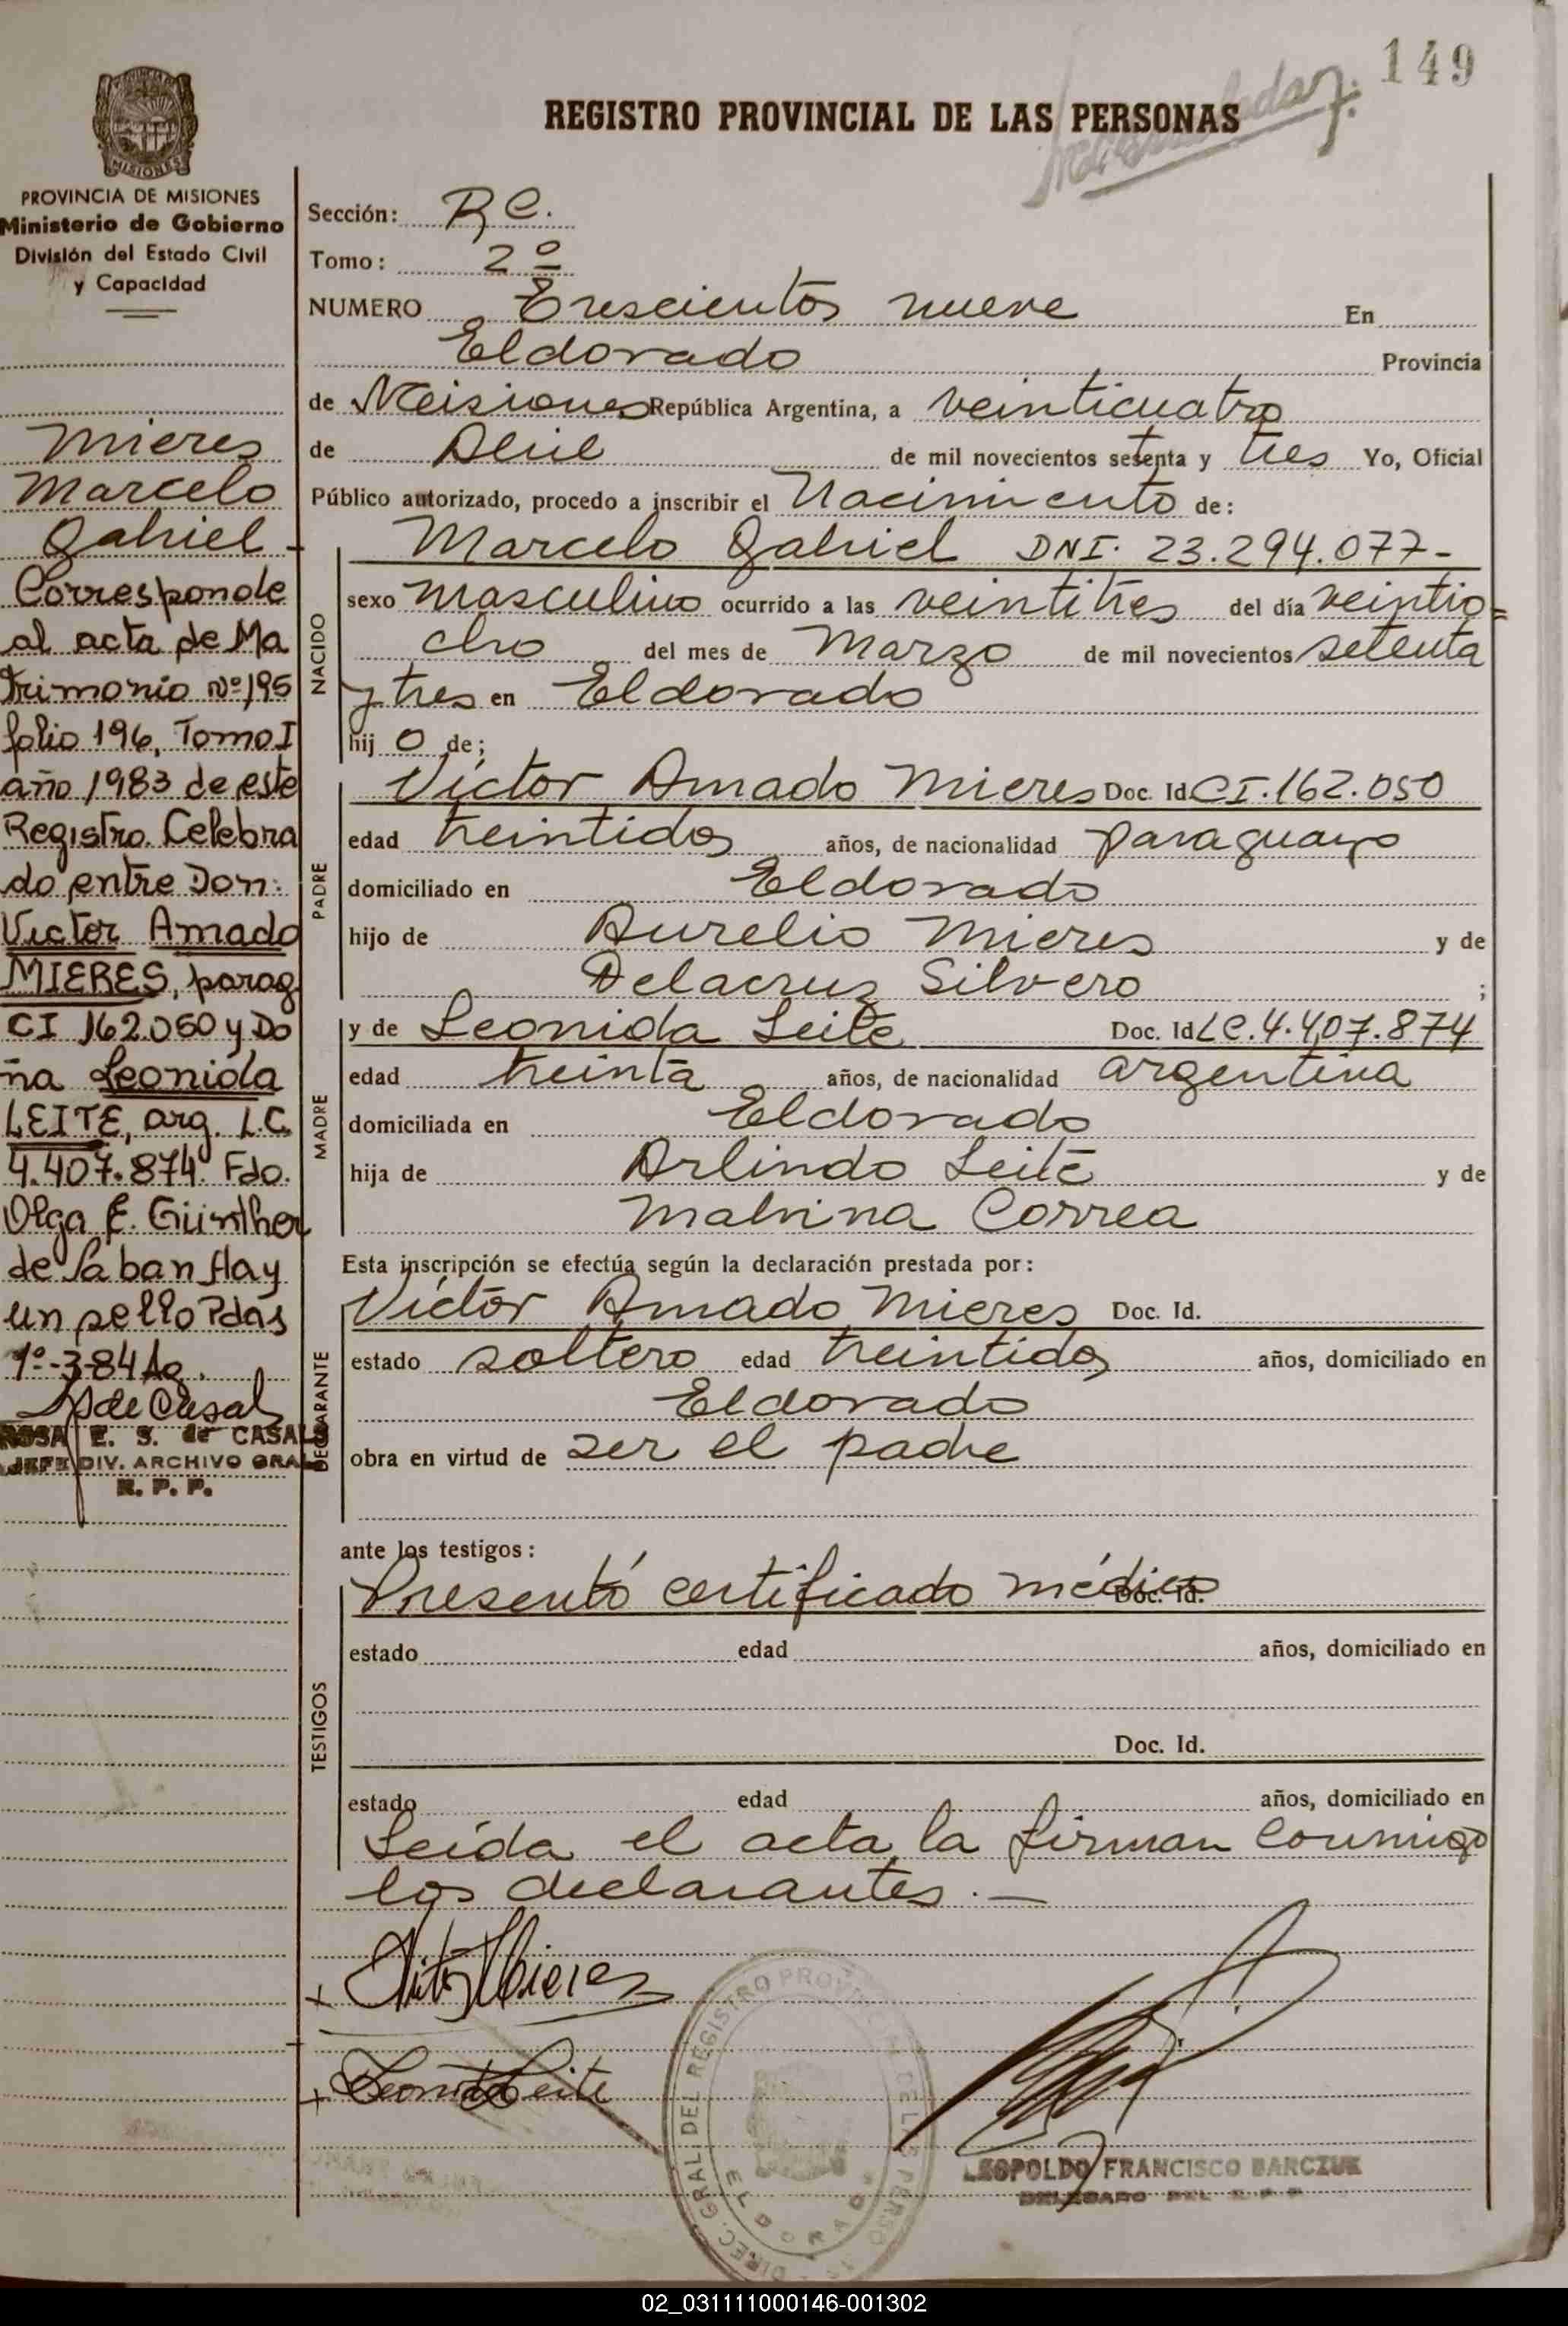 149
REGISTRO PROVINCIAL DE LAS PERSONAS
PROVINCIA DE MISIONES
Ministerio de Gobierno
División del Estado Civil
y Capacidad
Mieres
Marcelo
Gabriel
Corresponde
al acta de Ma
trimonio Nº 195
folio 196, Tomo I
año 1983 de este
Registro. Celebra
do entre Don:
Victor Amado
MIERES, parag
CI 162.050 y Do
ña Leonida
LEITE, arg. L.C.
4.407.874. Fdo.
Olga E. Günther
de Laban Hay
un sello Pdas
1º-3-84 Ag.
ROSA E. S. de CASALS
JEFE DIV. ARCHIVO GRAL
R. P. P.
Sección: R C.
Tomo: 2º
NUMERO Trescientos nueve En
Eldorado Provincia
de Misiones República Argentina, a veinticuatro
de Abril de mil novecientos setenta y tres Yo, Oficial
Público autorizado, procedo a inscribir el Nacimiento de:
NACIDO
Marcelo Gabriel DNI. 23.294.077-
sexo masculino ocurrido a las veintitres del día veintio=
cho del mes de Marzo de mil novecientos setenta
y tres en Eldorado
hij o de;
PADRE
Víctor Amado Mieres Doc. Id CI.162.050
edad treintidos años, de nacionalidad paraguayo
domiciliado en Eldorado
hijo de Aurelio Mieres y de
Delacruz Silvero ;
MADRE
y de Leonida Leite Doc. Id LC.4.407.874
edad treinta años, de nacionalidad argentina
domiciliada en Eldorado
hija de Arlindo Leite y de
Malvina Correa
Esta inscripción se efectúa según la declaración prestada por:
DECLARANTE
Víctor Amado Mieres Doc. Id.
estado soltero edad treintidos años, domiciliado en
Eldorado
obra en virtud de ser el padre
ante los testigos:
TESTIGOS
Presentó certificado médico Doc. Id.
estado edad años, domiciliado en
Doc. Id.
estado edad años, domiciliado en
Leída el acta, la firman conmigo
los declarantes.—
Leonida Leite
DIREC. GRAL. DEL REGISTRO PROVINCIAL DE LAS PERSO
ELDORADO
LEOPOLDO FRANCISCO BARCZUK
DELEGADO DEL R P P
02_031111000146-001302